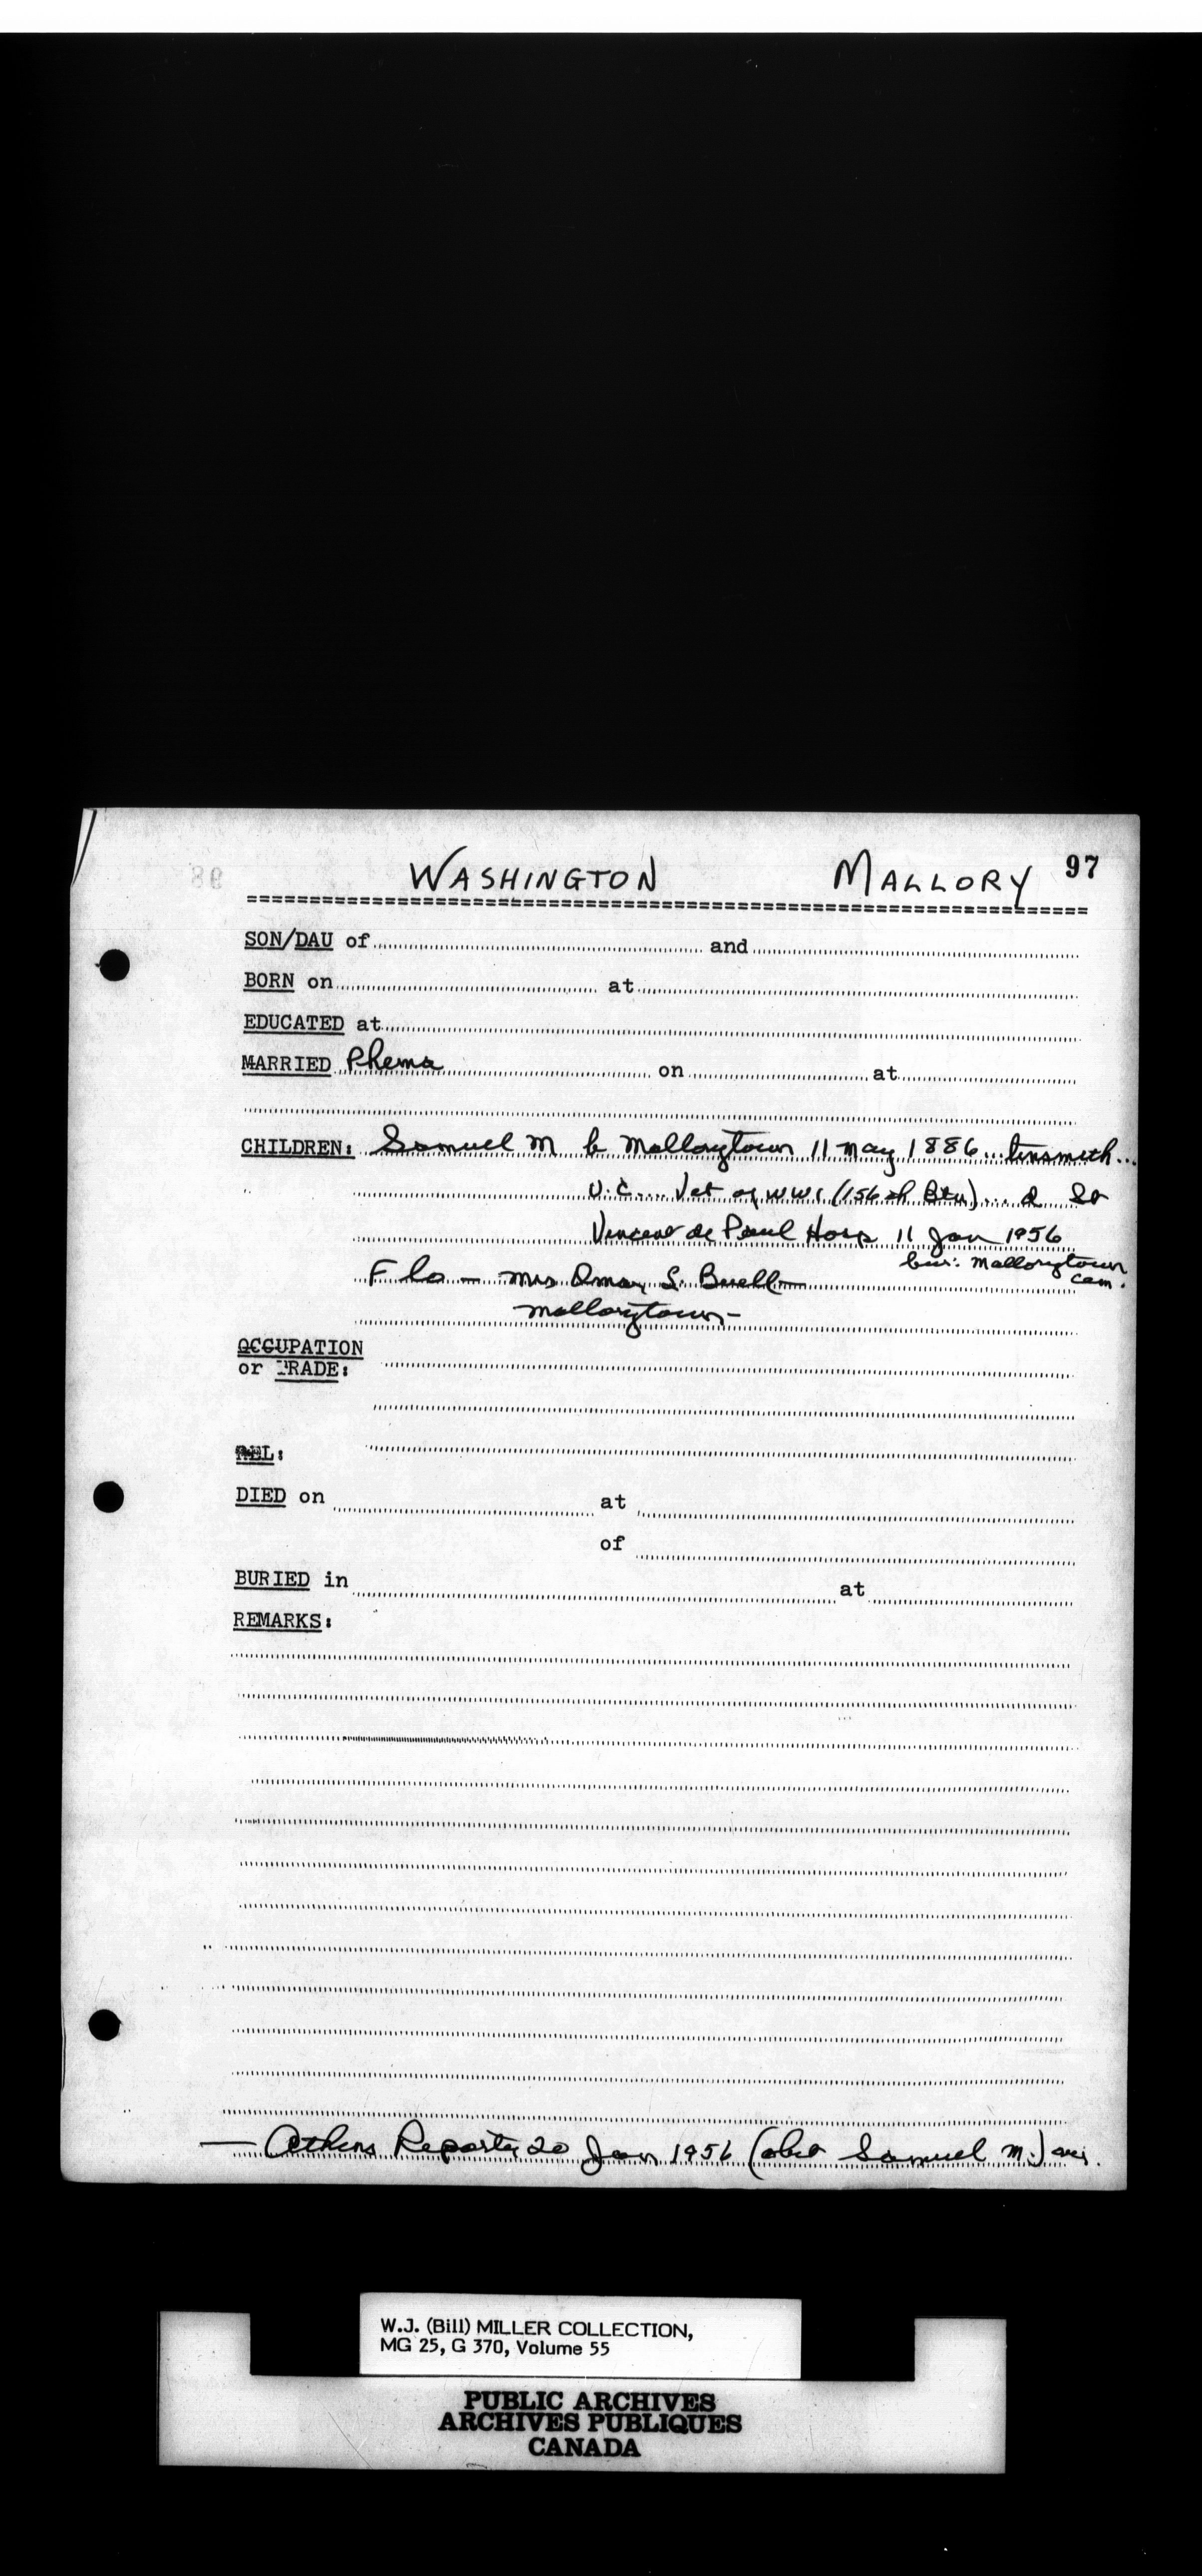 WASHINGTON MALLORY 97
98
SON/DAU of and
BORN on at
EDUCATED at
MARRIED Phema on at
CHILDREN: Samuel M b Mallorytown 11 May 1886... tinsmith...
U.C... Vet of WW1 (156th Btn)... d St
Vincent de Paul Hosp 11 Jan 1956
bur: Mallorytown
cem.
Flo — Mrs Omar S. Buell —
Mallorytown —
OCCUPATION
or TRADE:
REL:
DIED on at
of
BURIED in at
REMARKS:
— Athens Reporter 20 Jan 1956 (obit Samuel M.)
W.J. (Bill) MILLER COLLECTION,
MG 25, G 370, Volume 55
PUBLIC ARCHIVES
ARCHIVES PUBLIQUES
CANADA